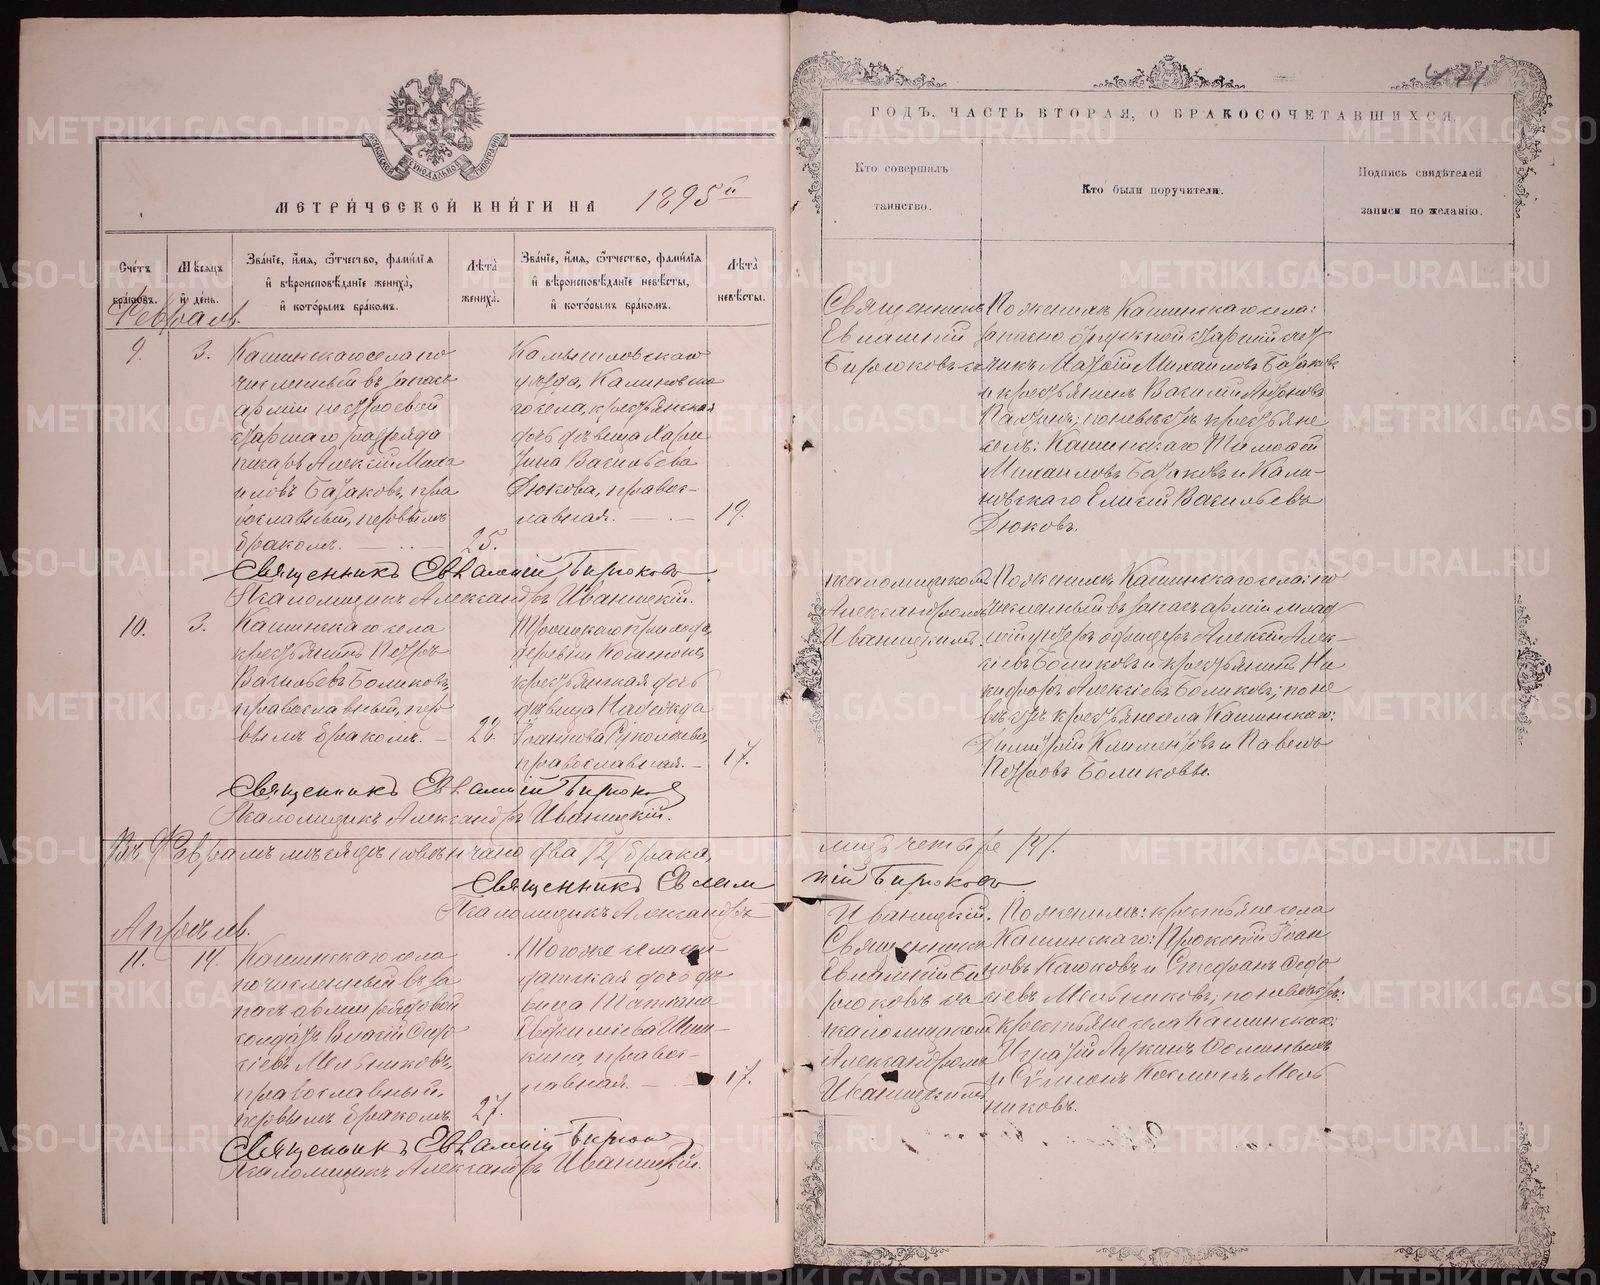 МЕТРИЧЕСКОЙ КНИГИ НА 1895 й
Счетъ браковъ.
Мѣсяцъ и день.
Званіе, имя, отчество, фамилія
и вѣроисповѣданіе жениха,
и которымъ бракомъ.
Лѣта жениха.
Званіе, имя, отчество, фамилія
и вѣроисповѣданіе невѣсты,
и которымъ бракомъ.
Лѣта невѣсты.
Февраль.
9.
3.
Кашинскаго села по
численный въ запасъ
арміи нестроевой
старшаго разряда
писарь Алексій Миха
иловъ Батаковъ, пра
вославный, первымъ
бракомъ.
25.
Камышловскаго
уѣзда, Калиновска
го села, крестьянская
дочь дѣвица Хари
тина Васильева
Дюкова, правос-
лавная.
19.
Священникъ Евлампій Бирюковъ.
Псаломщикъ Александръ Иваницкій.
10.
3.
Кашинскаго села
крестьянинъ Петръ
Васильевъ Боликовъ,
православный, пер
вымъ бракомъ.
22.
Троицкаго прихода,
деревни
крестьянская дочь
дѣвица Надежда
Іоаннова
православная.
17.
Священникъ Евлампій Бирюковъ
Псаломщикъ Александръ Иваницкій.
Въ Февралѣ мѣсяцѣ повѣнчано два /2/ брака,
Священникъ Евлам
Псаломщикъ Александръ
Апрѣль.
11.
14.
Кашинскаго села
почисленный въ за
пасъ арміи рядовой
солдатъ Власій Ѳедо
сіевъ Мельниковъ,
православный,
первымъ бракомъ.
27.
Того же села сол
датская дочь дѣ
вица Татьяна
Евфиміева Шиш
кина, правос-
лавная.
17.
Священникъ Евлампій Бирюков
Псаломщикъ Александръ Иваницкій.
471
ГОДЪ, ЧАСТЬ ВТОРАЯ, О БРАКОСОЧЕТАВШИХСЯ.
Кто совершалъ
таинство.
Кто были поручители.
Подпись свидѣтелей
записи по желанію.
Священникъ
Евлампій
Бирюковъ съ
псаломщикомъ
Александромъ
Иваницкимъ.
По женихѣ Кашинскаго села:
запасно отпускной старшій
Михаиловъ Батаковъ
и крестьянинъ Василій Антоновъ
по невѣстѣ крестьяне
селъ: Кашинскаго Тимоѳей
Михаиловъ Батаковъ и Кали-
новскаго Елисей Васильевъ
Дюковъ.
По женихѣ Кашинскаго села: по
численный въ запасъ арміи млад
шій унтеръ офицеръ Алексій Алек-
сіевъ Боликовъ и крестьянинъ Ни
кифоръ Алексіевъ Боликовъ; по не
вѣстѣ крестьяне села Кашинскаго:
Димитрій Климентовъ и Павелъ
Петровъ Боликовы.
лицъ четыре /4/.
пій Бирюковъ.
Иваницкій.
Священникъ
Евлампій Би
рюковъ съ
псаломщикомъ
Александромъ
Иваницкимъ
По женихѣ: крестьяне села
Кашинскаго: Прокопій Іоан
новъ Каюковъ и Стефанъ Ѳедо
сіевъ Мельниковъ; по невѣстѣ:
крестьяне села Кашинскаго:
и Симеонъ Космин Мель
никовъ.